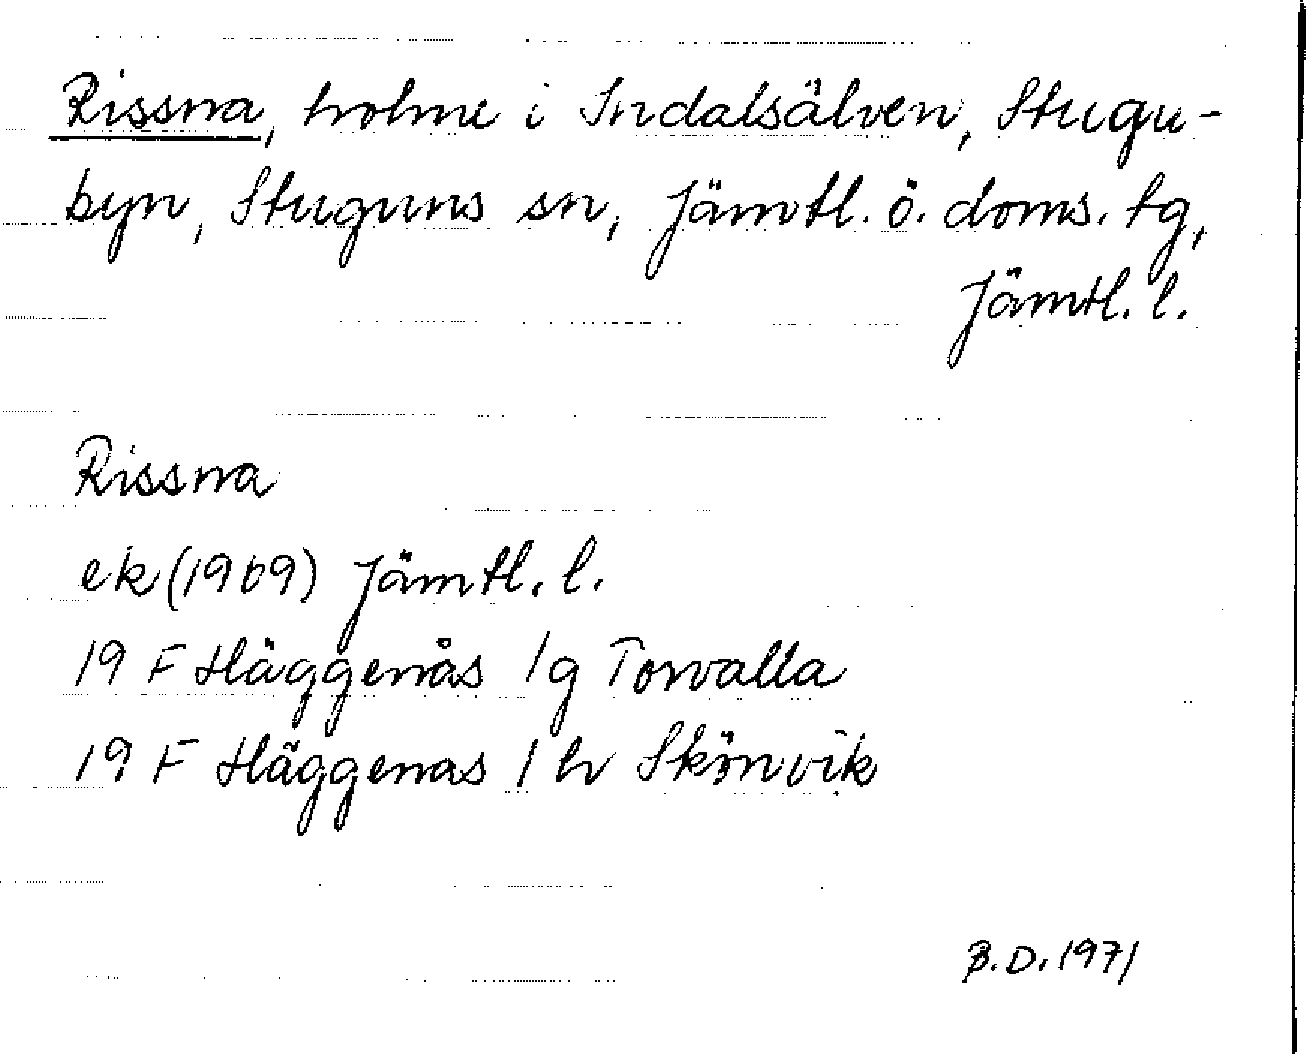 Rissna, holme i Indalsälven, Stugu-
byn, Stuguns sn, Jämtl. ö. doms. tg,
Jämtl. l.
Rissna
ek (1969) Jämtl. l.
19 F Häggenås 1g Torvalla
19 F Häggenas 1 h Skönvik
B.D. 1971